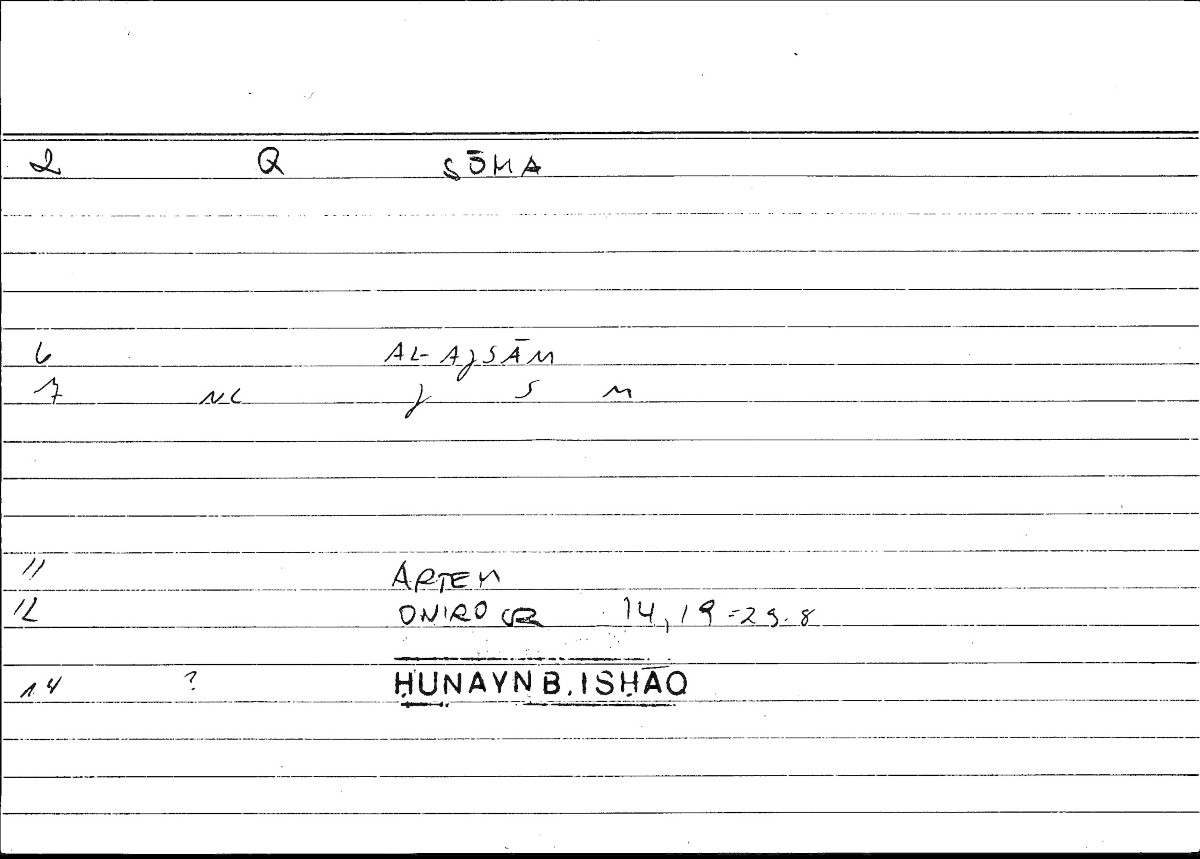 2 Q SŌMA
6 AL-AJSĀM
7 NC J S M
11 ARTEM
12 ONIROCR 14,19=29.8
14 ? ḤUNAYN B. ISḤĀQ